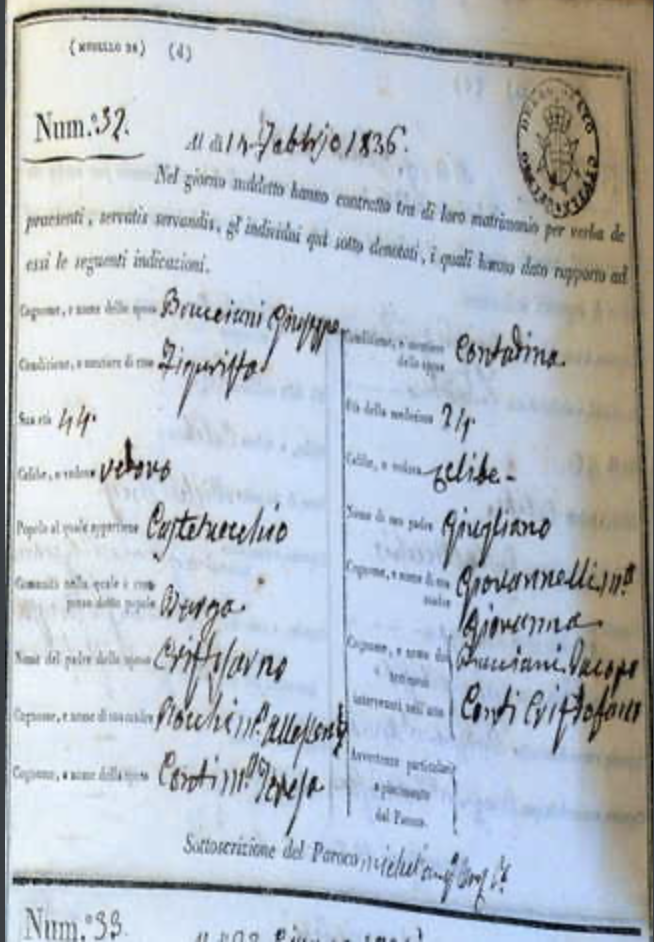 (MODELLO DE) (d)
Num.º 32.
Al dì 14 Febbrjo 1836.
Nel giorno suddetto hanno contratto tra di loro matrimonio per verba de
praesenti, servatis servandis, gl' individui qui sotto denotati, i quali hanno dato rapporto ad
essi le seguenti indicazioni.
Cognome, e nome dello sposo Brucciani Giuseppe
Condizione, e mestiere di esso Figurista
Sua età 44.
Celibe, o vedovo vedovo
Popolo al quale appartiene Castelvecchio
Comunità nella quale è compreso detto popolo
Nome del padre dello sposo Cristofarno
Cognome, e nome di sua madre
Cognome, e nome della sposa Conti Mª Teresa
Condizione, e mestiere
della sposa Contadina
Età della medesima 24.
Celibe, o vedova celibe -
Nome di suo padre Giugliano
Cognome, e nome di sua
madre Giovannelli Mª
Giovanna
Cognome, e nome dei
testimoni
intervenuti nell' atto
Brucciani Jacopo
Conti Cristofano
Avvertenze particolari
a piacimento
del Paroco.
Sottoscrizione del Paroco
Num.º 33.